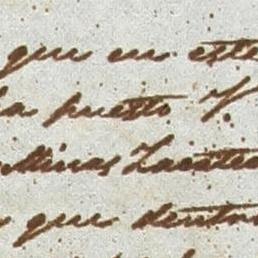 que en este
ha puesto J.
Minas Zacatec
que dentro